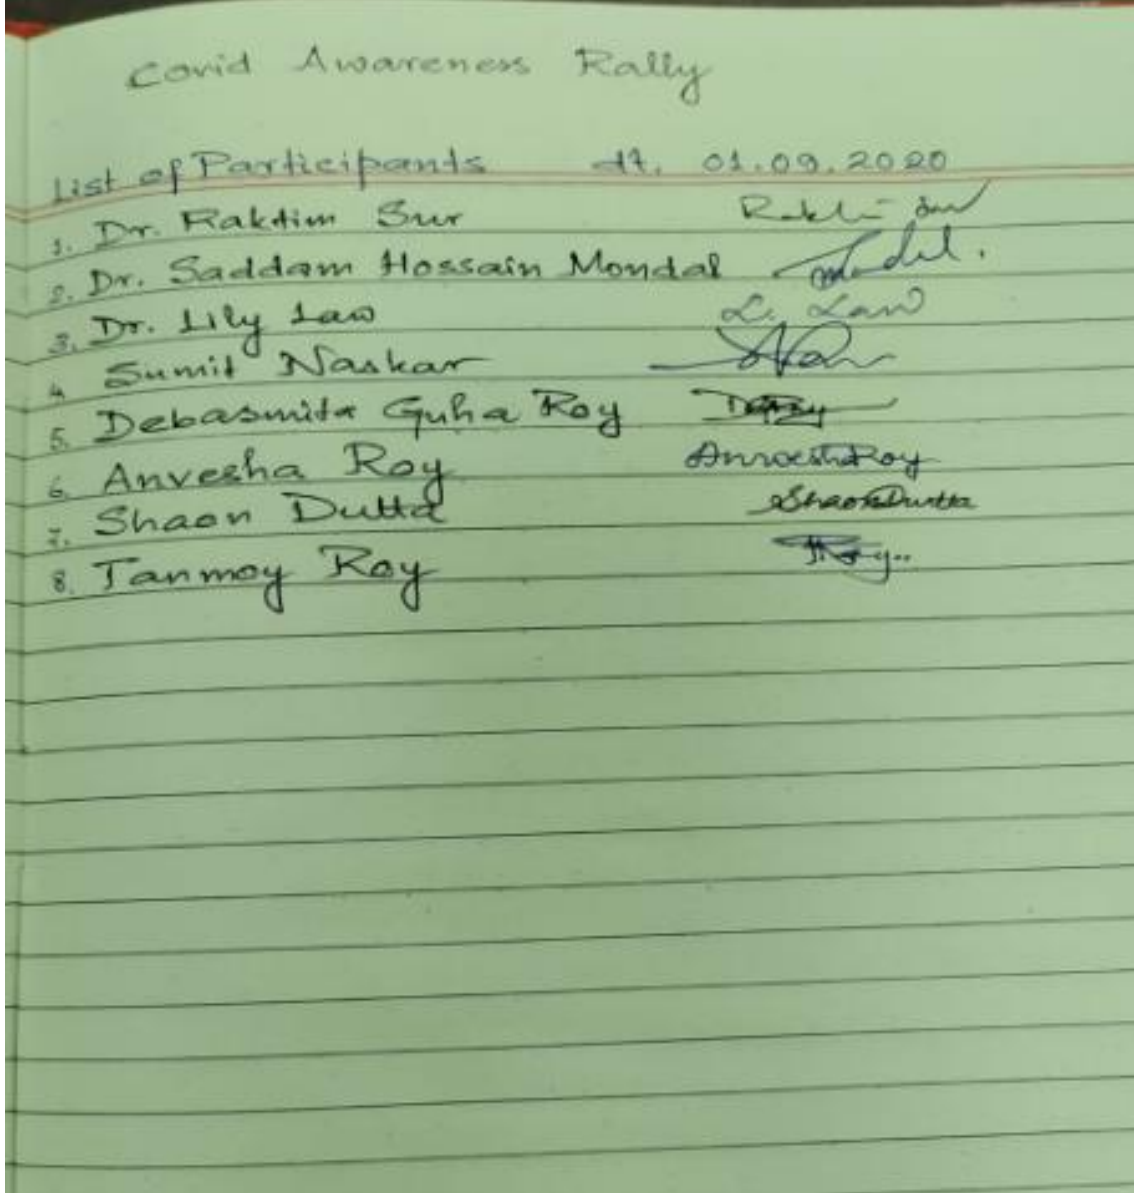 Covid Awareness Rally
List of Participants dt. 01.09.2020
1. Dr. Raktim Sur Rakti Sur
2. Dr. Saddam Hossain Mondal Mondal.
3. Dr. Lily Law L. Law
4 Sumit Naskar
5. Debasmita Guha Roy
6. Anvesha Roy Anvesha Roy
7. Shaon Dutta Shaon Dutta
8. Tanmoy Roy TRoy..